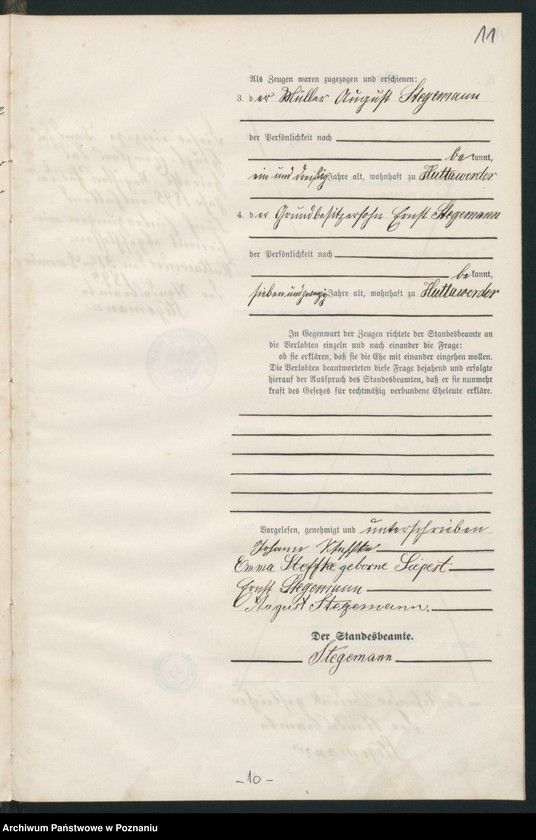 11
Als Zeugen waren zugezogen und erschienen:
3. der Müller August Stegemann
der Persönlichkeit nach
bekannt,
ein und dreißig Jahre alt, wohnhaft zu Huttawerder
4. der Grundbesitzersohn Ernst Stegemann
der Persönlichkeit nach
bekannt,
sieben und zwanzig Jahre alt, wohnhaft zu Huttawerder
In Gegenwart der Zeugen richtete der Standesbeamte an
die Verlobten einzeln und nach einander die Frage:
ob sie erklären, daß sie die Ehe mit einander eingehen wollen.
Die Verlobten beantworteten diese Frage bejahend und erfolgte
hierauf der Ausspruch des Standesbeamten, daß er sie nunmehr
kraft des Gesetzes für rechtmäßig verbundene Eheleute erkläre.
Vorgelesen, genehmigt und unterschrieben
Johann Steffke
Emma Steffke geborne Siepert
Ernst Stegemann
August Stegemann.
Der Standesbeamte.
Stegemann
- 10 -
Archiwum Państwowe w Poznaniu